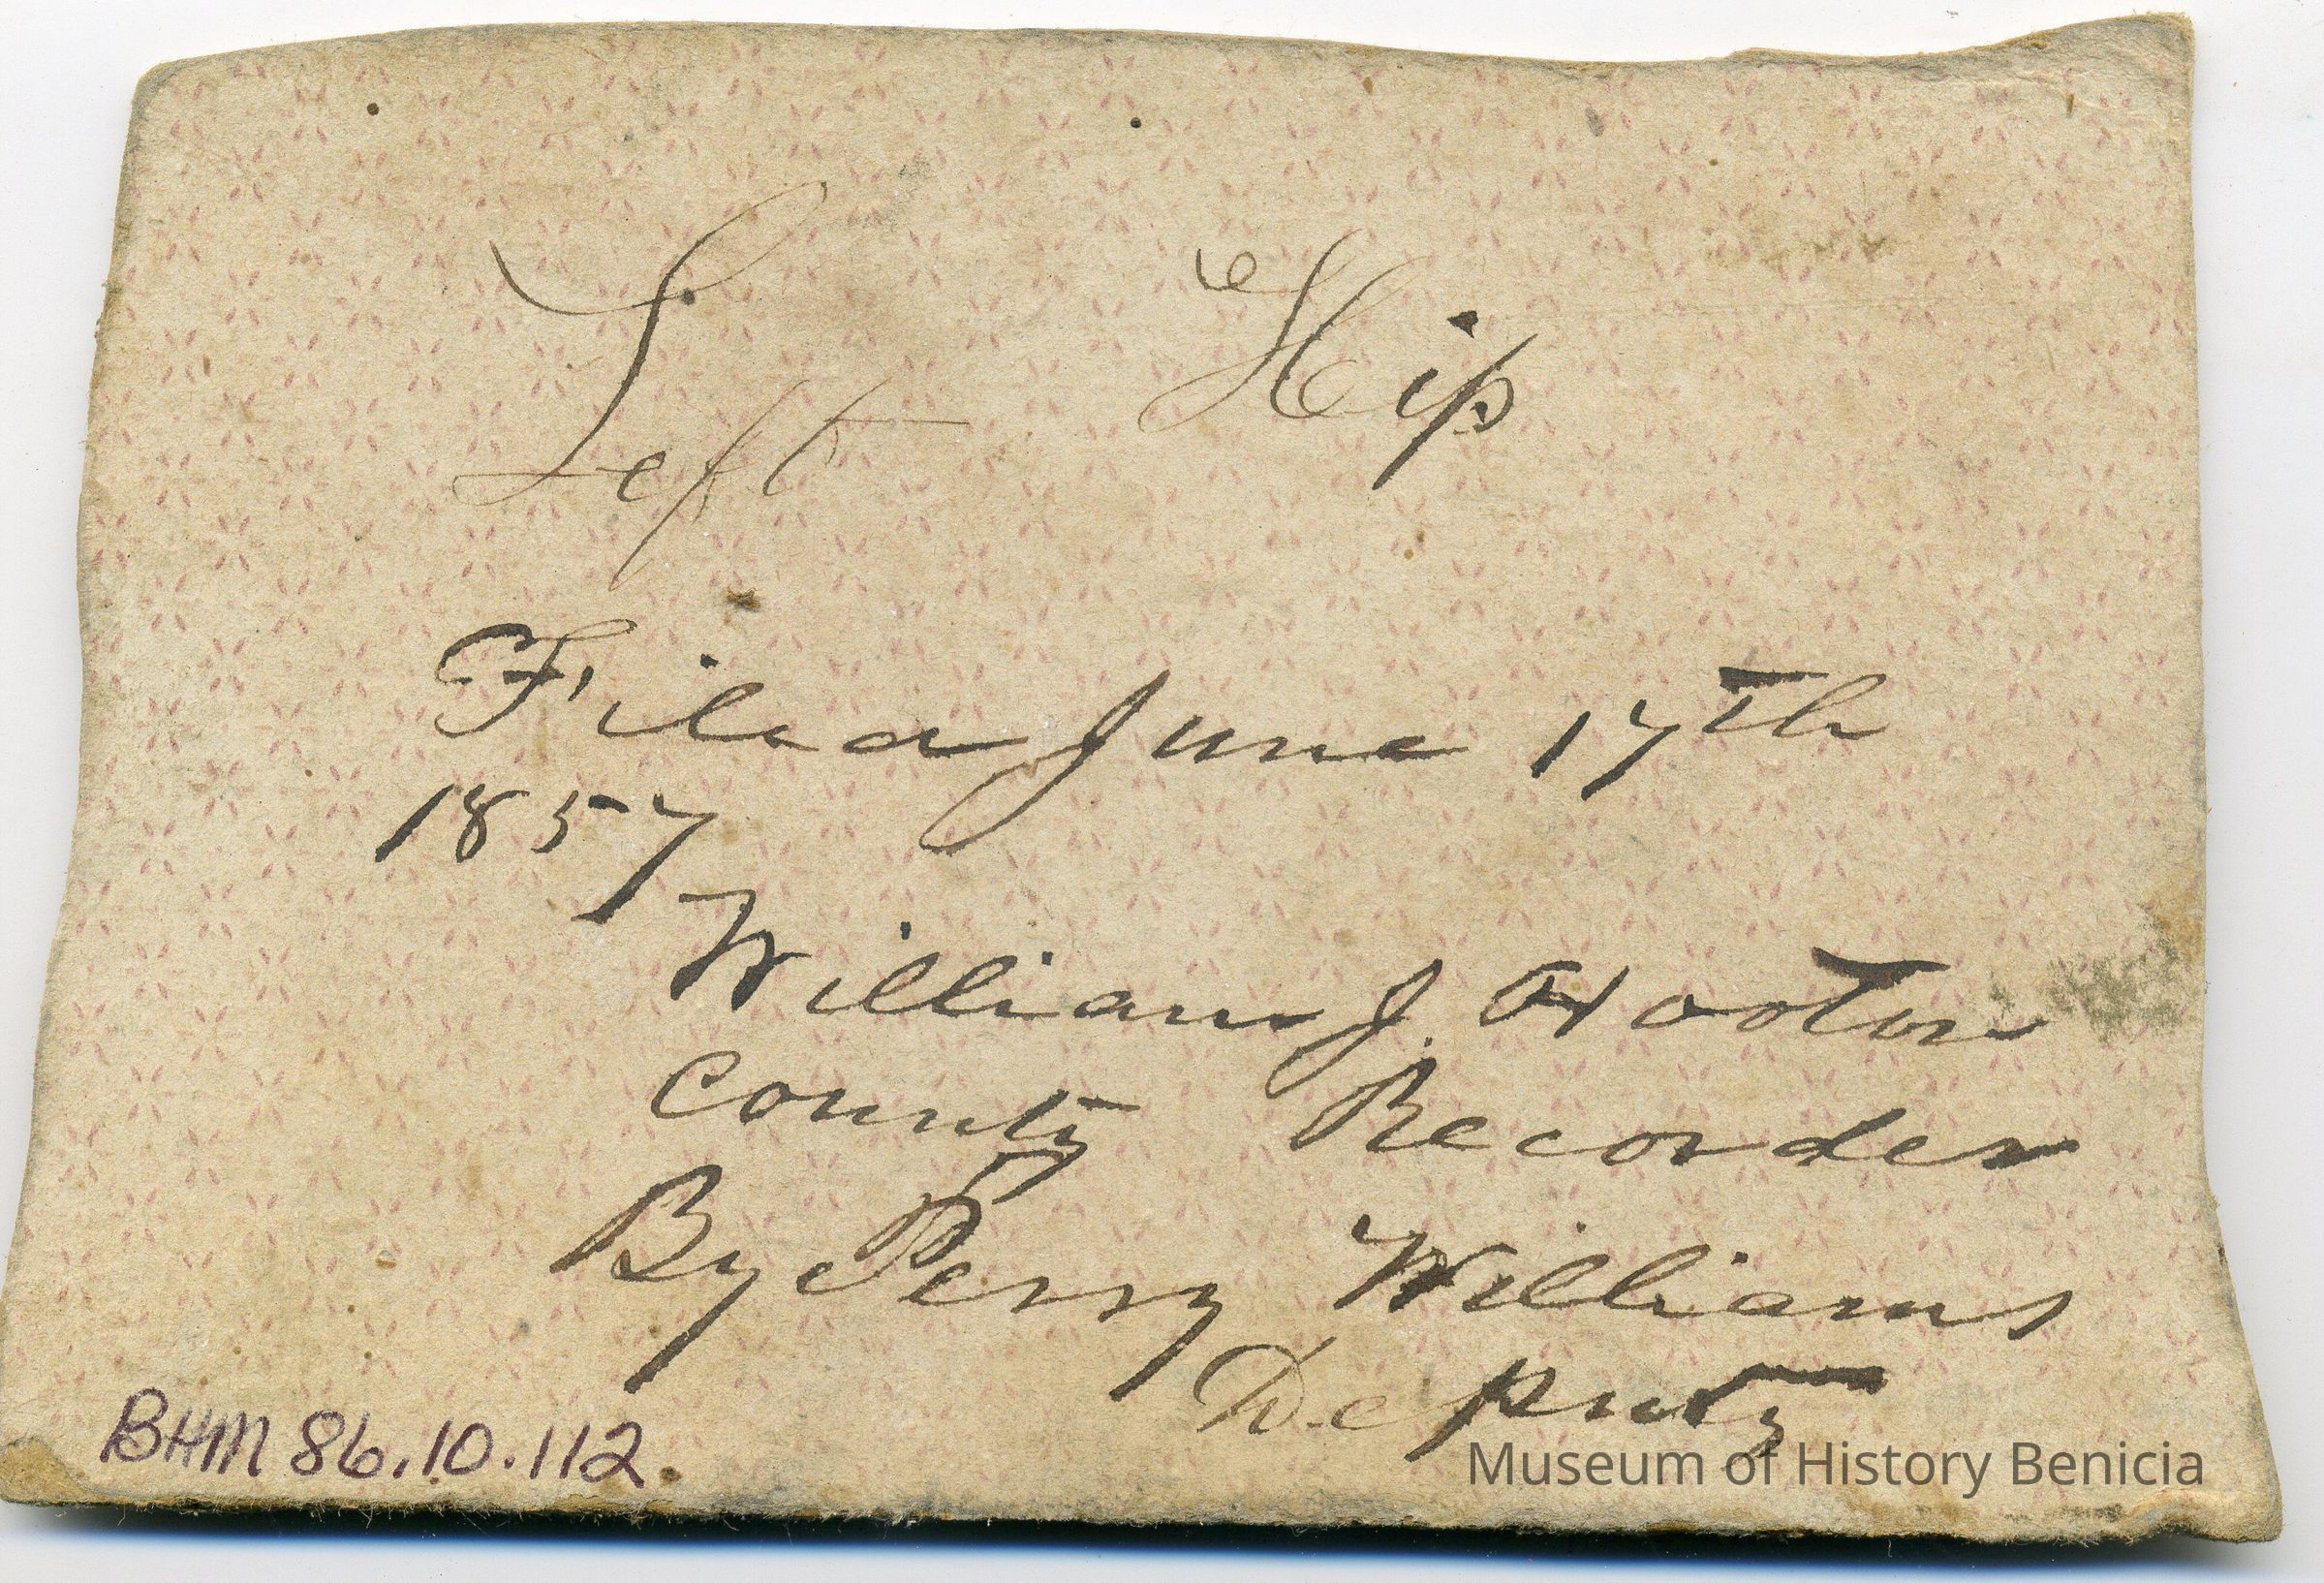 Left Hip
Filed June 17th
1857
William J. Hooton
County Recorder
By Perry Williams
Deputy
BHM 86.10.112.
Museum of History Benicia